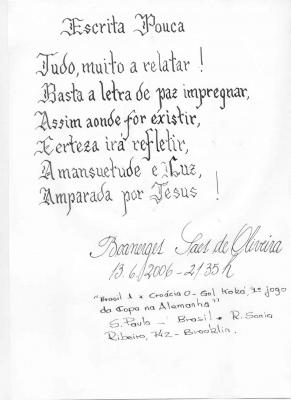 Escrita Pouca
Tudo, muito a relatar !
Basta a letra de paz impregnar,
Assim aonde for existir,
Certeza irá refletir,
A mansuetude e Luz,
Amparada por Jesus !
Boanerges Saes de Oliveira
13.6.2006 - 2135 h
"Brasil 1 x Croácia 0 - Gol Kaká, 1º jogo
da Copa na Alemanha"
S. Paulo - Brasil - R. Sonia
Ribeiro, 742 - Brooklin.